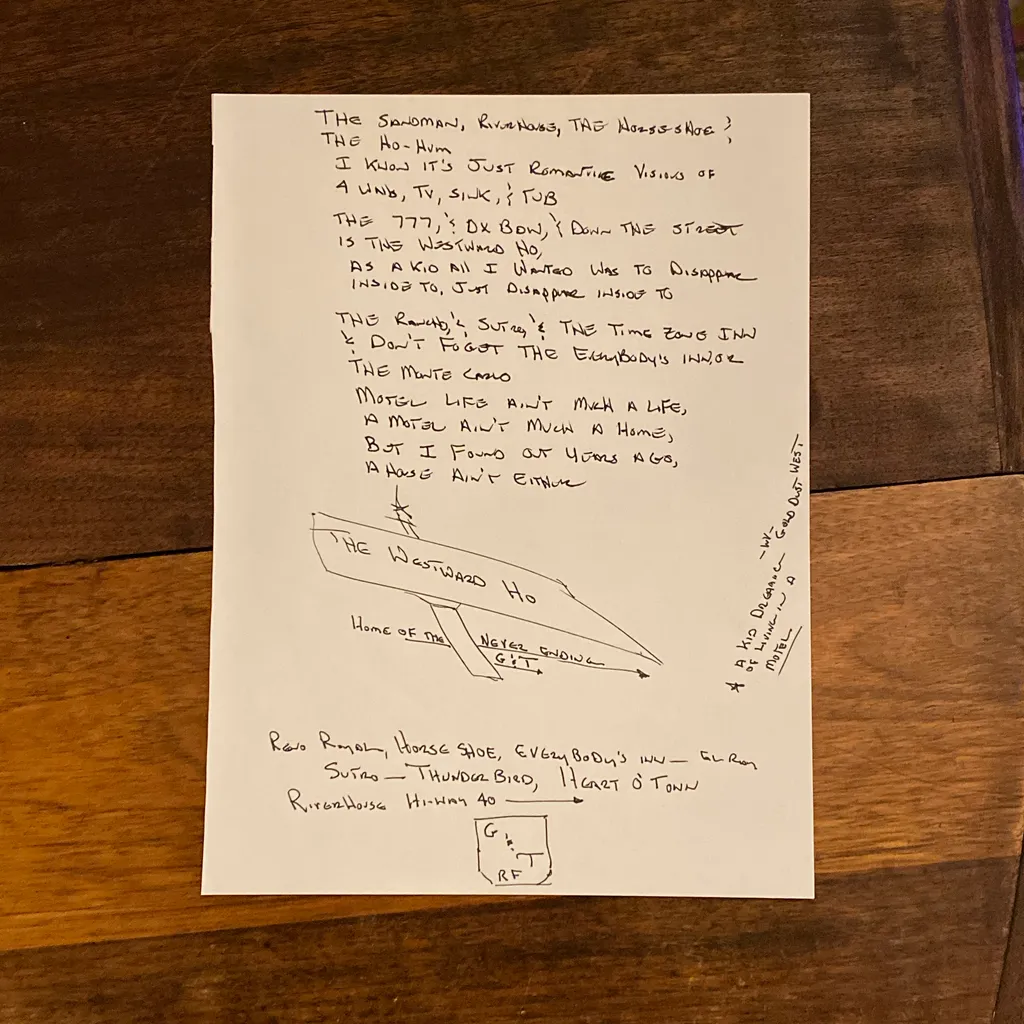 THE SANDMAN, RIVERHOUSE, THE HORSESHOE &
THE HO-HUM
I KNOW IT'S JUST ROMANTIC VISIONS OF
4 WALLS, TV, SINK, & TUB
THE 777, & OX BOW, & DOWN THE STREET
IS THE WESTWARD HO,
AS A KID All I WANTED WAS TO DISAPPEAR
INSIDE TO, JUST DISAPPEAR INSIDE TO
THE RANCHO, & SUTRO, & THE TIME ZONE INN
& DON'T FOGET THE EVERYBODY'S INN, OR
THE MONTE CARLO
MOTEL LIFE AIN'T MUCH A LIFE,
A MOTEL AIN'T MUCH A HOME,
BUT I FOUND OUT YEARS AGO,
A HOUSE AIN'T EITHER
THE WESTWARD HO
HOME OF THE NEVER ENDING
G&T
★ A KID DREAMING
OF LIVING IN A
MOTEL
GOLD DUST WEST
RENO ROYAL, HORSE SHOE, EVERYBODY'S INN — EL RAY
SUTRO — THUNDERBIRD, HEART O' TOWN
RIVERHOUSE HI-WAY 40
G & T
RF